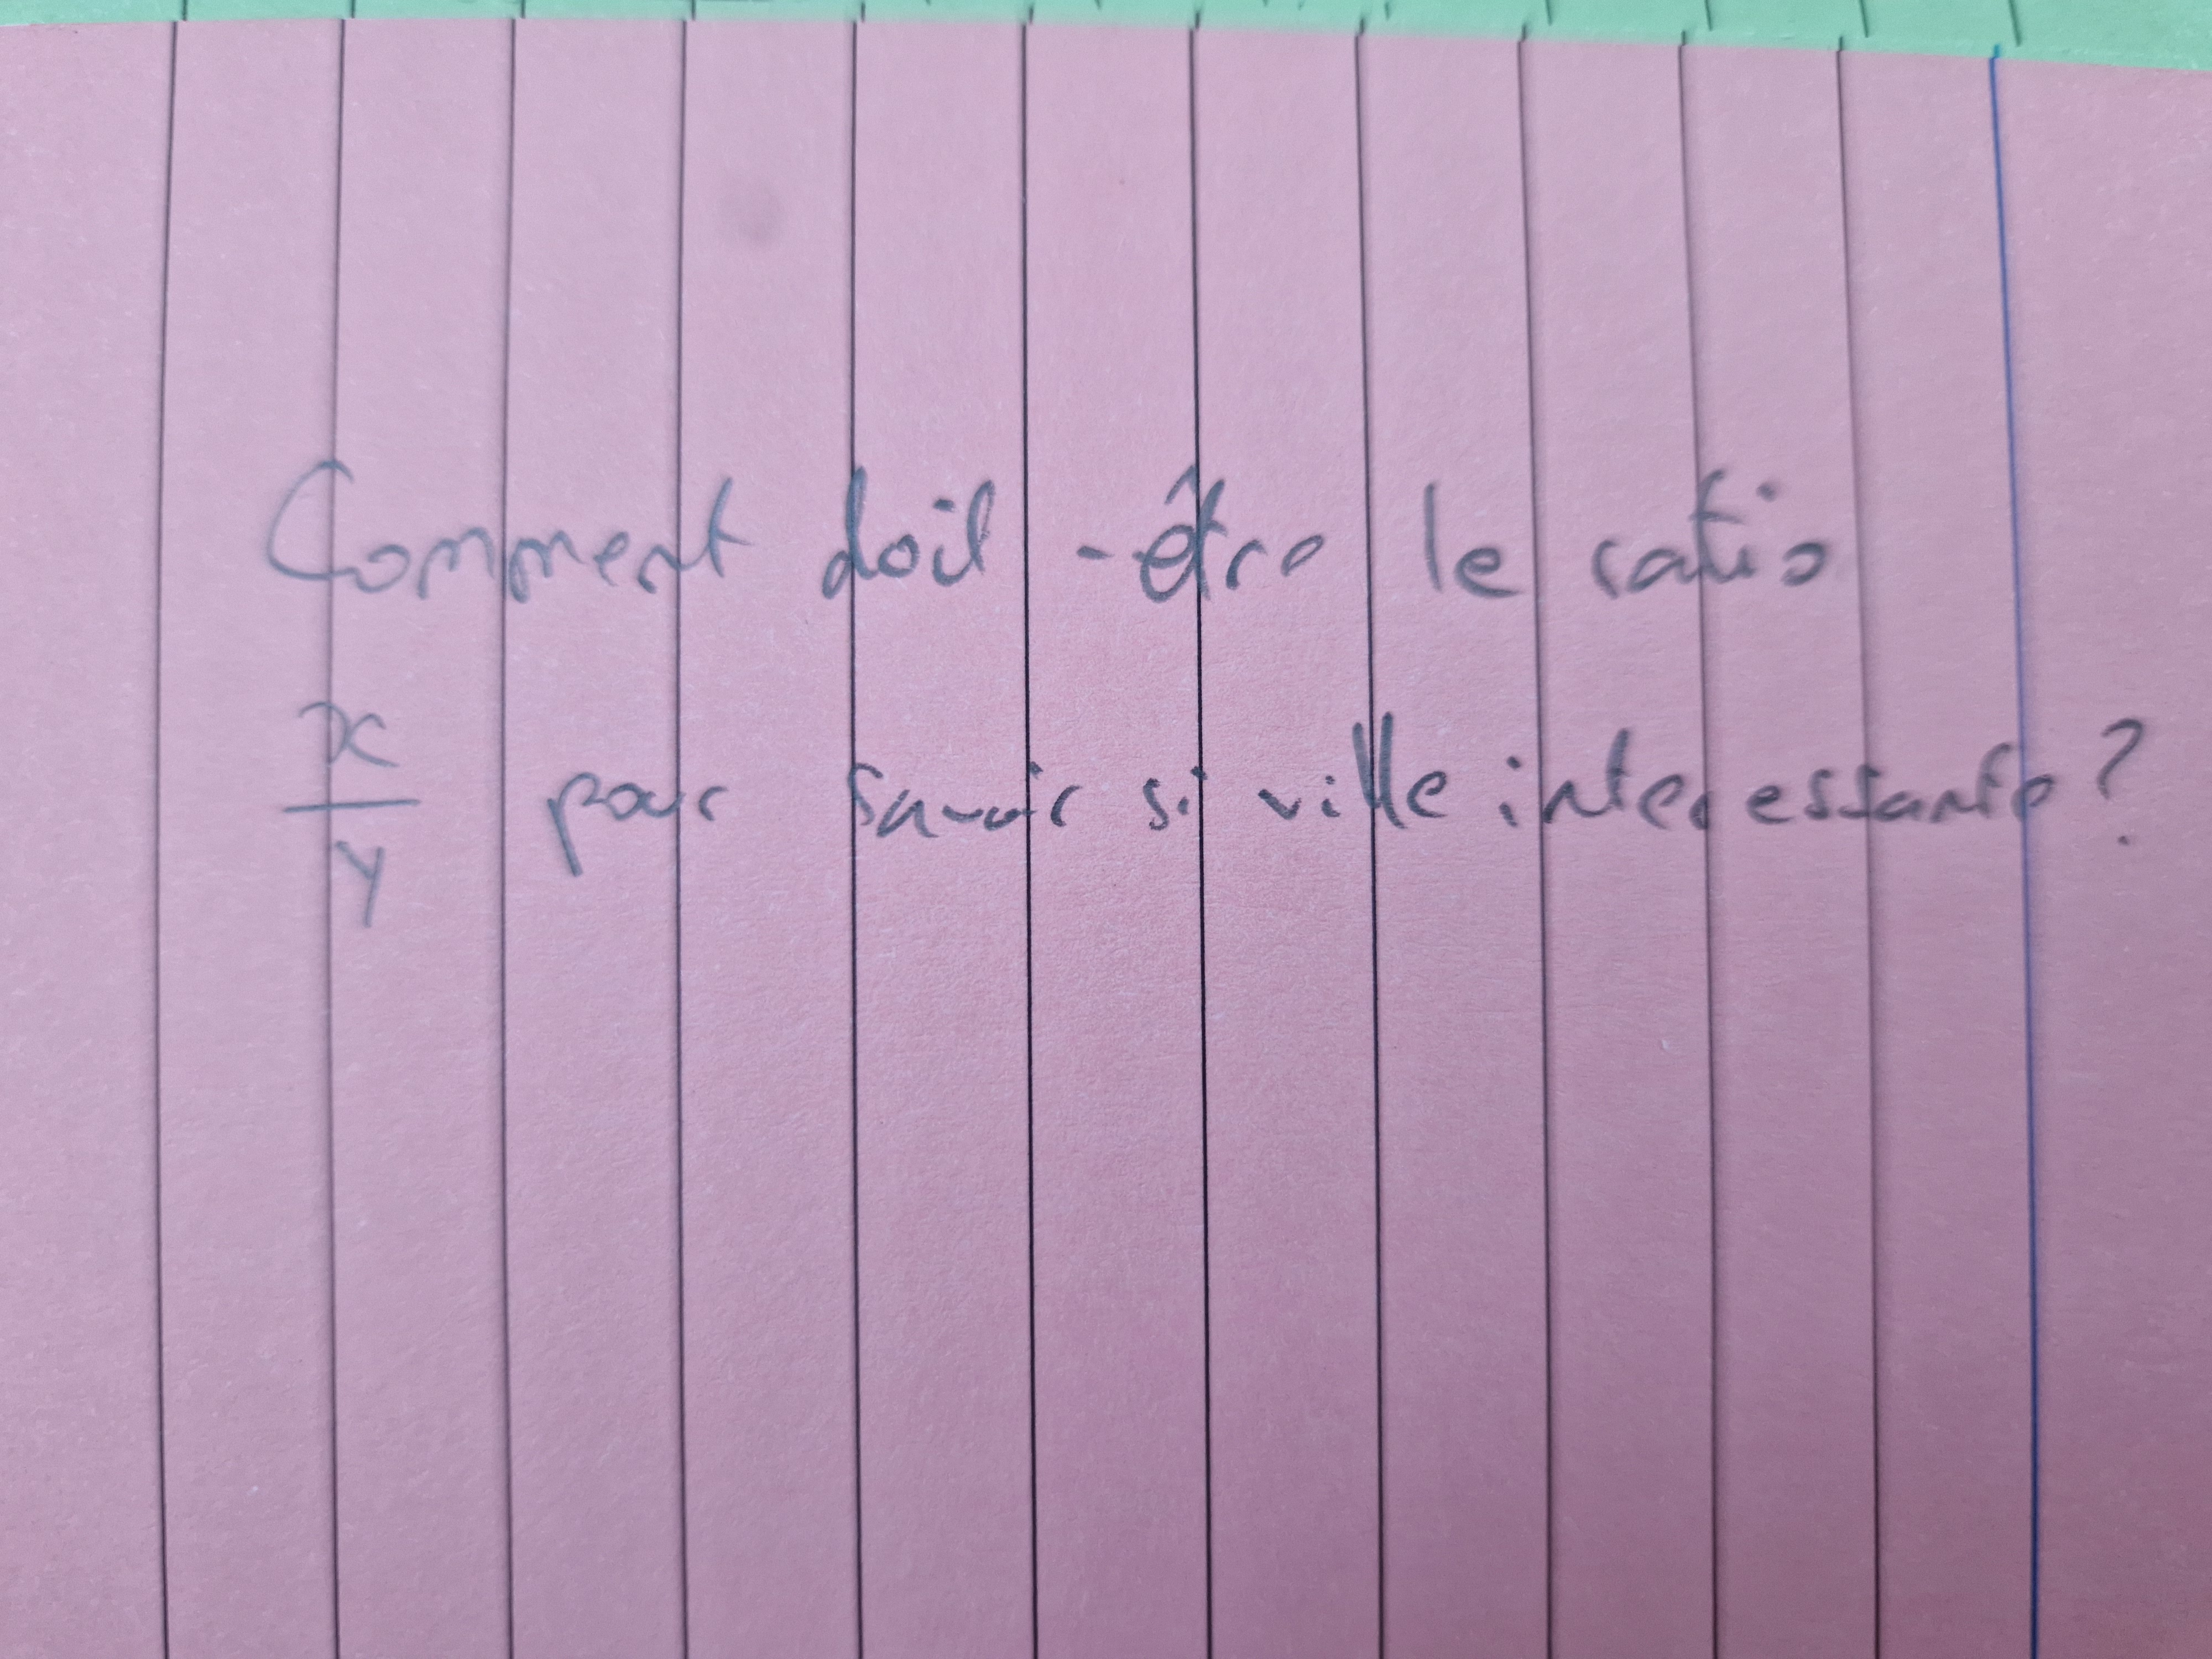 Comment doit -être le ratio
x/y pour savoir si ville interessante ?